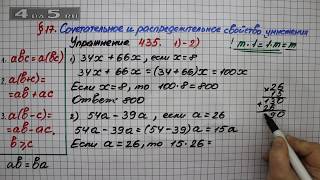 4 на 5
.RU
§17. Сочетательное и распределительное свойство умножения
Упражнение 435. 1)-2)
m·1=1·m=m
1. abc=a(bc)
2. a(b+c)=
=ab+ac
3. a(b-c)=
=ab-ac,
b>c
ab=ba
1) 34x+66x, если x=8
34x+66x=(34+66)x=100x
Если x=8, то 100·8=800
Ответ: 800
2) 54a-39a, если a=26
54a-39a=(54-39)a=15a
Если a=26, то 15·26=
×26
15
+130
26
90